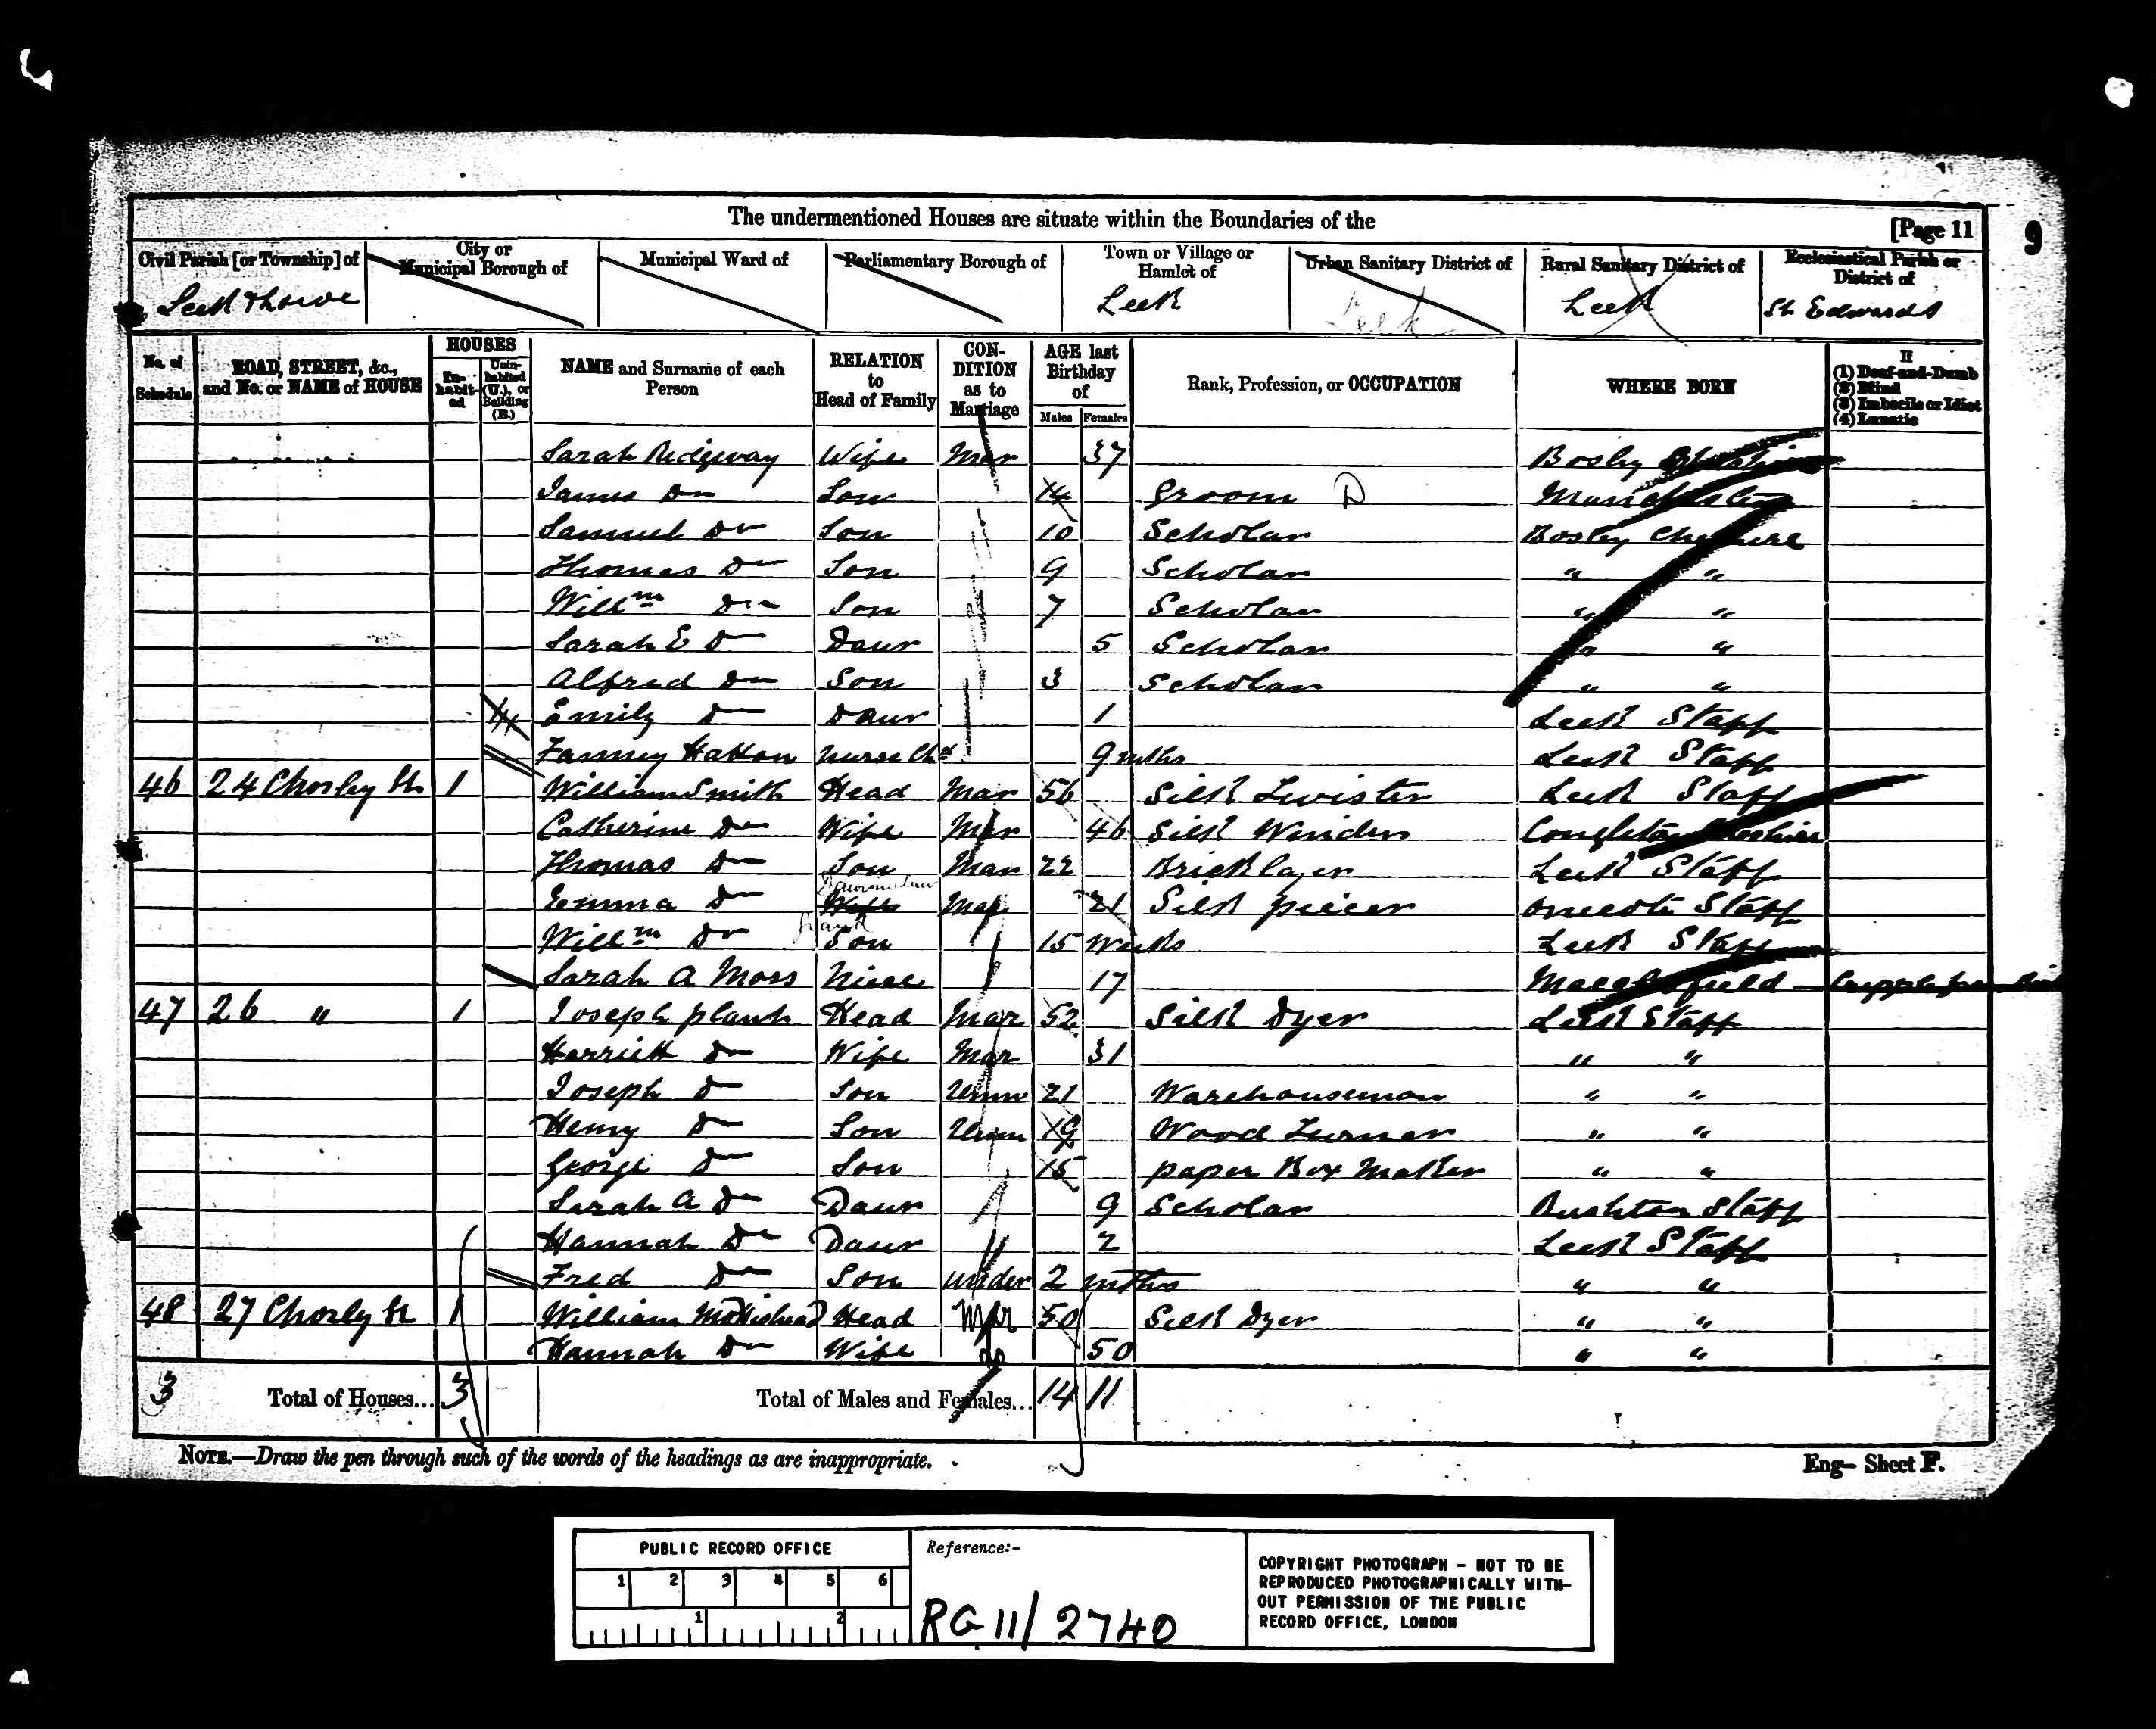 The undermentioned Houses are situate within the Boundaries of the
[Page 11
9
Civil Parish [or Township] of
City or Municipal Borough of
Municipal Ward of
Parliamentary Borough of
Town or Village or Hamlet of
Urban Sanitary District of
Rural Sanitary District of
Ecclesiastical Parish or District of
Leek & Lowe
Leek
Leek
Leek
St Edwards
No. of Schedule
ROAD, STREET, &c., and No. or NAME of HOUSE
HOUSES
Inhabited
Uninhabited (U.), or Building (B.)
NAME and Surname of each Person
RELATION to Head of Family
CONDITION as to Marriage
AGE last Birthday of
Males
Females
Rank, Profession, or OCCUPATION
WHERE BORN
If
(1) Deaf-and-Dumb
(2) Blind
(3) Imbecile or Idiot
(4) Lunatic
Sarah Ridgway Wife Mar 37 Bosley Cheshire
James Do Son 14 Groom D Manchester
Samuel Do Son 10 Scholar Bosley Cheshire
Thomas Do Son 9 Scholar " "
Willm Do Son 7 Scholar " "
Sarah E Do Daur 5 Scholar " "
Alfred Do Son 3 Scholar " "
Emily Do Daur 1 Leek Staff
Fanney Hatton nurse Chd 9 mths Leek Staff
46 24 Chorley St 1 William Smith Head Mar 56 Silk Twister Leek Staff
Catherine Do Wife Mar 46 Silk Winder Congleton Cheshire
Thomas Do Son Mar 22 Bricklayer Leek Staff
Daur in Law
Emma Do Wife Mar 21 Silk piecer Onecote Staff
Grand
Willm Do Son 15 Weeks Leek Staff
Sarah A Moss Niece 17 Macclesfield
47 26 " 1 Joseph plant Head Mar 52 Silk Dyer Leek Staff
Harriett Do Wife Mar 31 " "
Joseph Do Son Unm 21 Warehouseman " "
Henry Do Son Unm 19 Wood Turner " "
George Do Son 15 paper Box Maker " "
Sarah A Do Daur 9 Scholar Rushton Staff
Hannah Do Daur 2 Leek Staff
Fred Do Son under 2 mths " "
48 27 Chorley St 1 William Mottishead Head Mar 50 Silk Dyer " "
Hannah Do Wife Do 50 " "
3 Total of Houses... 3 Total of Males and Females... 14 11
NOTE.—Draw the pen through such of the words of the headings as are inappropriate.
Eng- Sheet F.
PUBLIC RECORD OFFICE
1 2 3 4 5 6
1 2
Reference:-
RG 11/2740
COPYRIGHT PHOTOGRAPH - NOT TO BE
REPRODUCED PHOTOGRAPHICALLY WITH-
OUT PERMISSION OF THE PUBLIC
RECORD OFFICE, LONDON